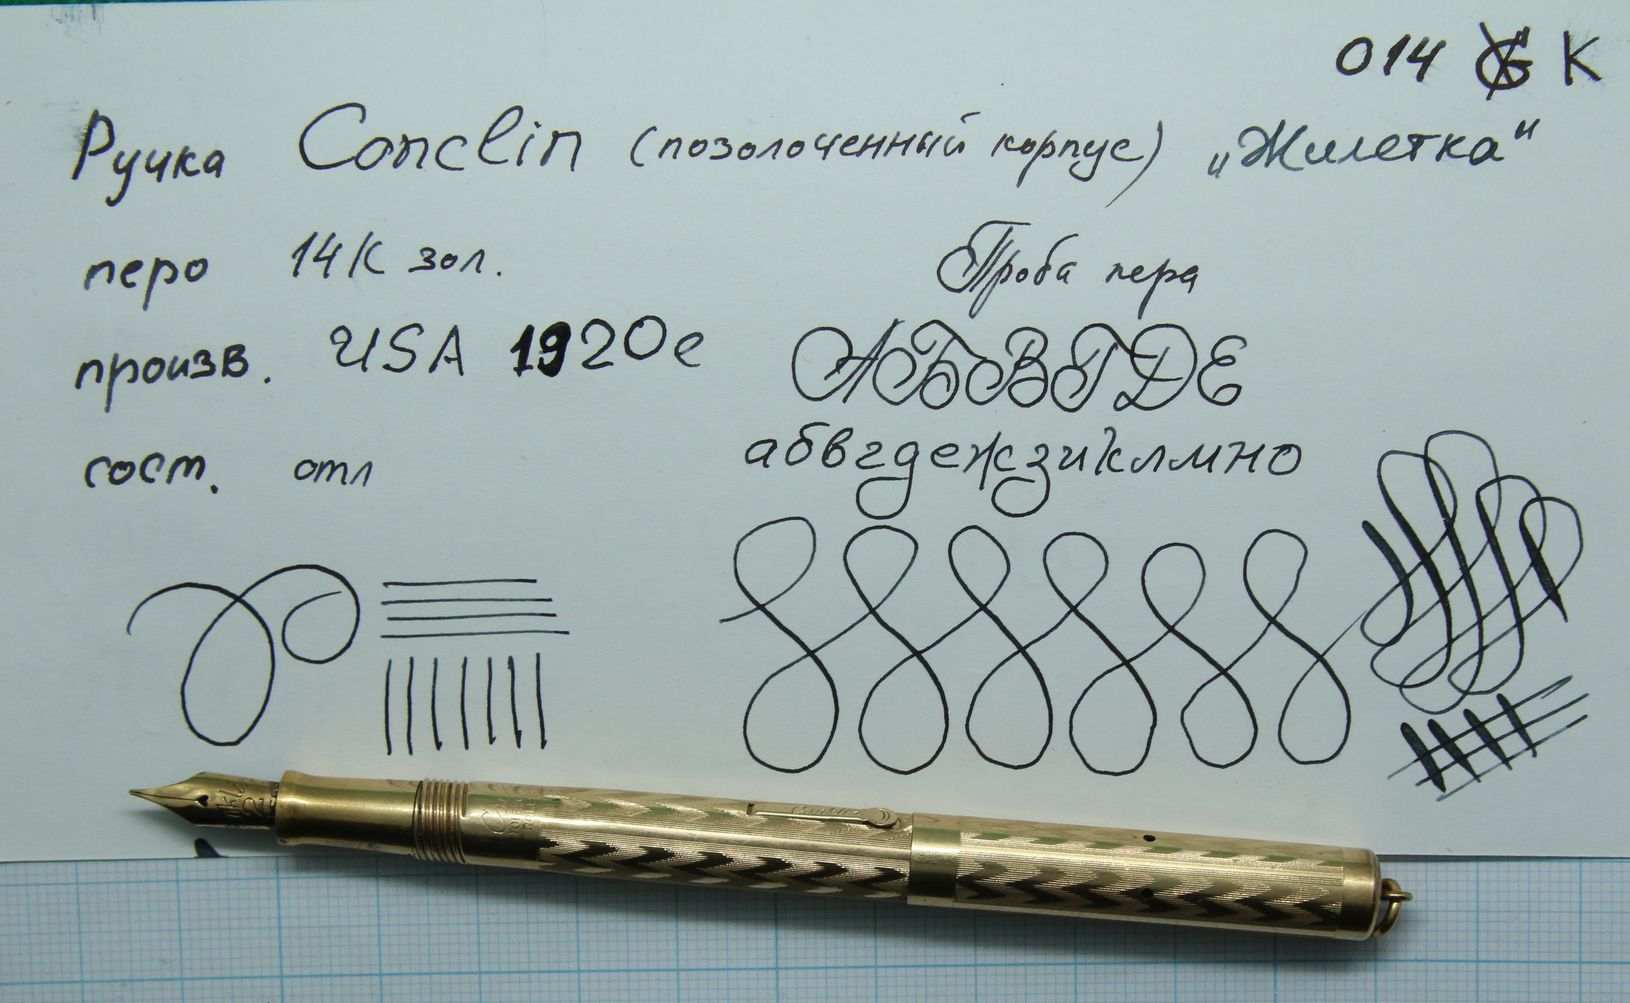 014 K
Ручка Conclin (позолоченный корпус) „Жилетка"
перо 14К зол.
Проба пера
произв. USA 1920е
АБВГДЕ
сост. отл
абвгдежзиклмно